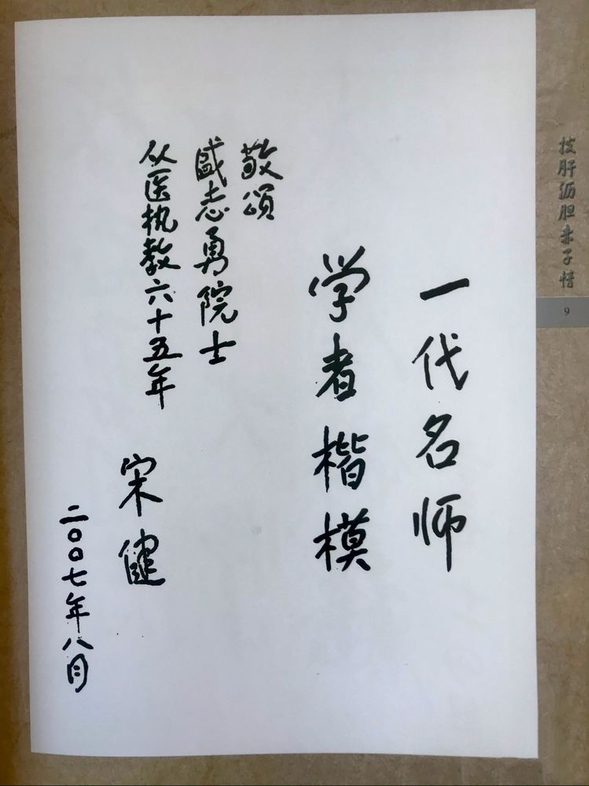 一代名师
学者楷模
敬颂
盛志勇院士
从医执教六十五年
宋健
二〇〇七年八月
披肝沥胆赤子情
9